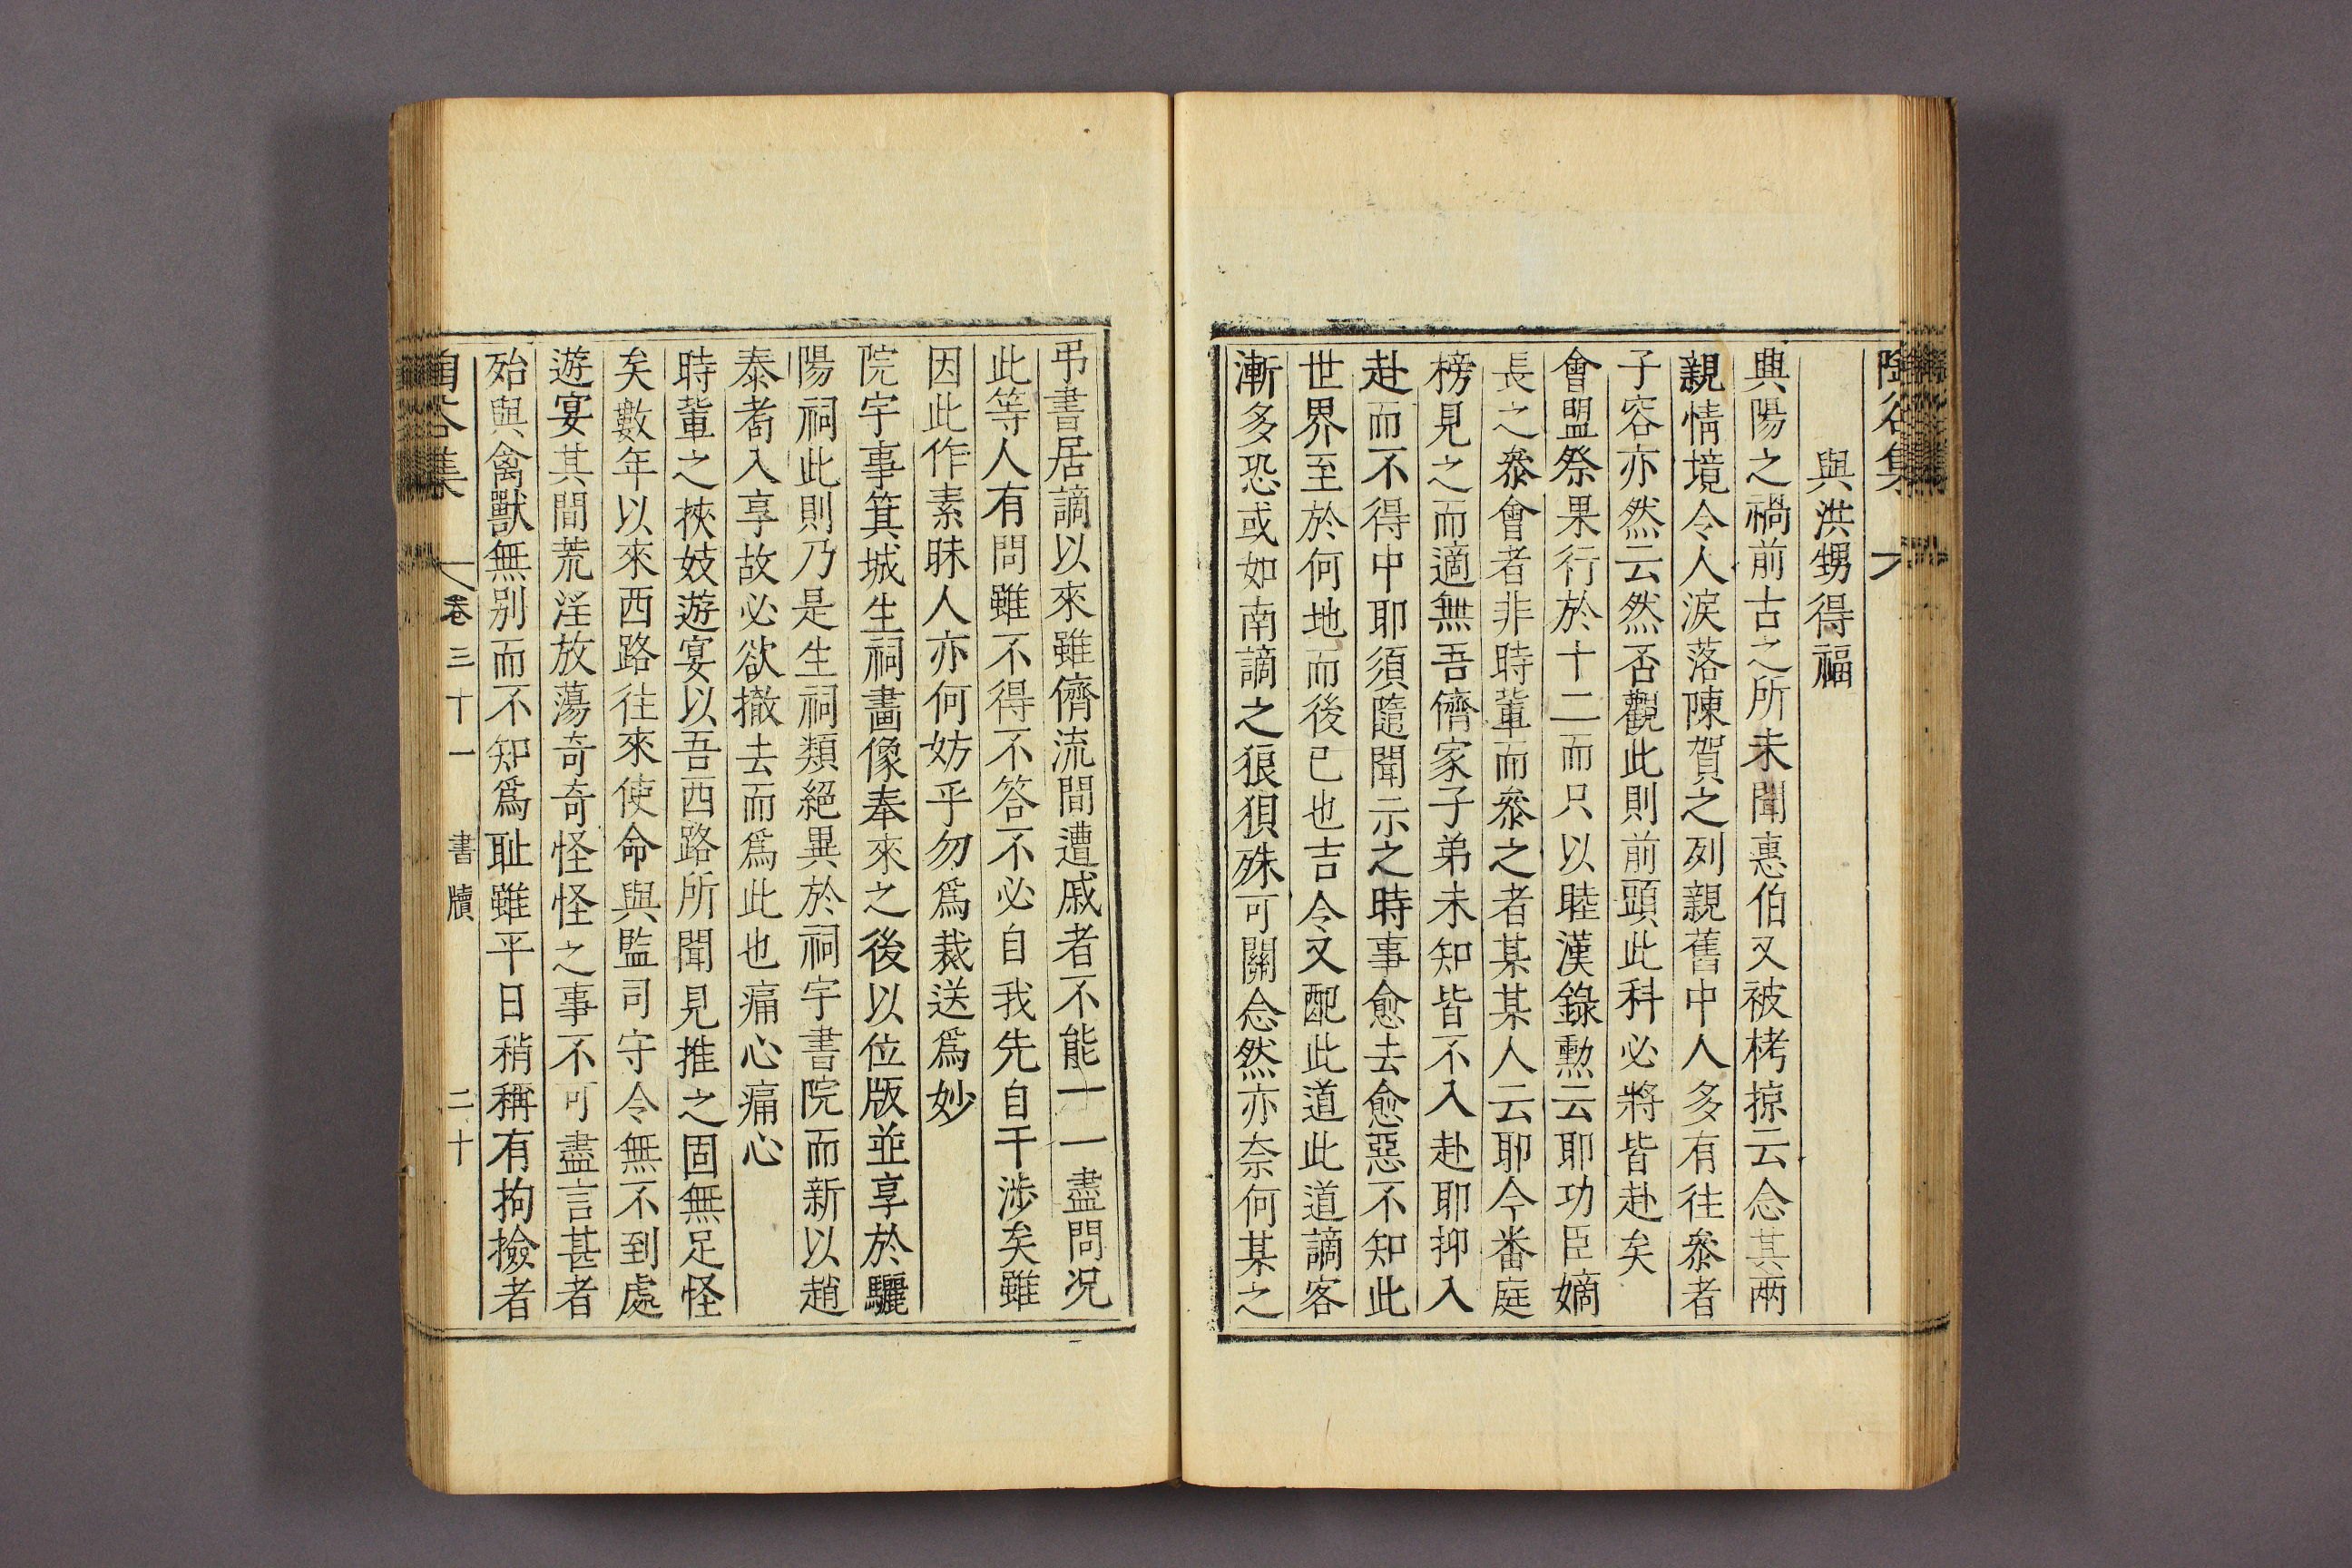 陶谷集
與洪甥得福
興陽之禍前古之所未聞惠伯又被栲掠云念其兩
親情境令人淚落陳賀之列親舊中人多有往叅者
子容亦然云然否觀此則前頭此科必將皆赴矣
會盟祭果行於十二而只以睦漢錄勲云耶功臣嫡
長之叅會者非時軰而叅之者某某人云耶今番庭
榜見之而適無吾儕家子弟未知皆不入赴耶抑入
赴而不得中耶須隨聞示之時事愈去愈惡不知此
世界至於何地而後已也吉令又配此道此道謫客
漸多恐或如南謫之狼狽殊可關念然亦奈何某之
弔書居謫以來雖儕流間遭戚者不能一一盡問况
此等人有問雖不得不答不必自我先自干涉矣雖
因此作素昧人亦何妨乎勿爲裁送爲妙
院宇事箕城生祠畵像奉來之後以位版並享於驪
陽祠此則乃是生祠類絕異於祠宇書院而新以趙
泰耉入享故必欲撤去而爲此也痛心痛心
時軰之挾妓遊宴以吾西路所聞見推之固無足怪
矣數年以來西路往來使命與監司守令無不到處
遊宴其間荒淫放蕩奇奇怪怪之事不可盡言甚者
殆與禽獸無别而不知爲耻雖平日稍稱有拘撿者
陶谷集 卷三十一 書牘 二十